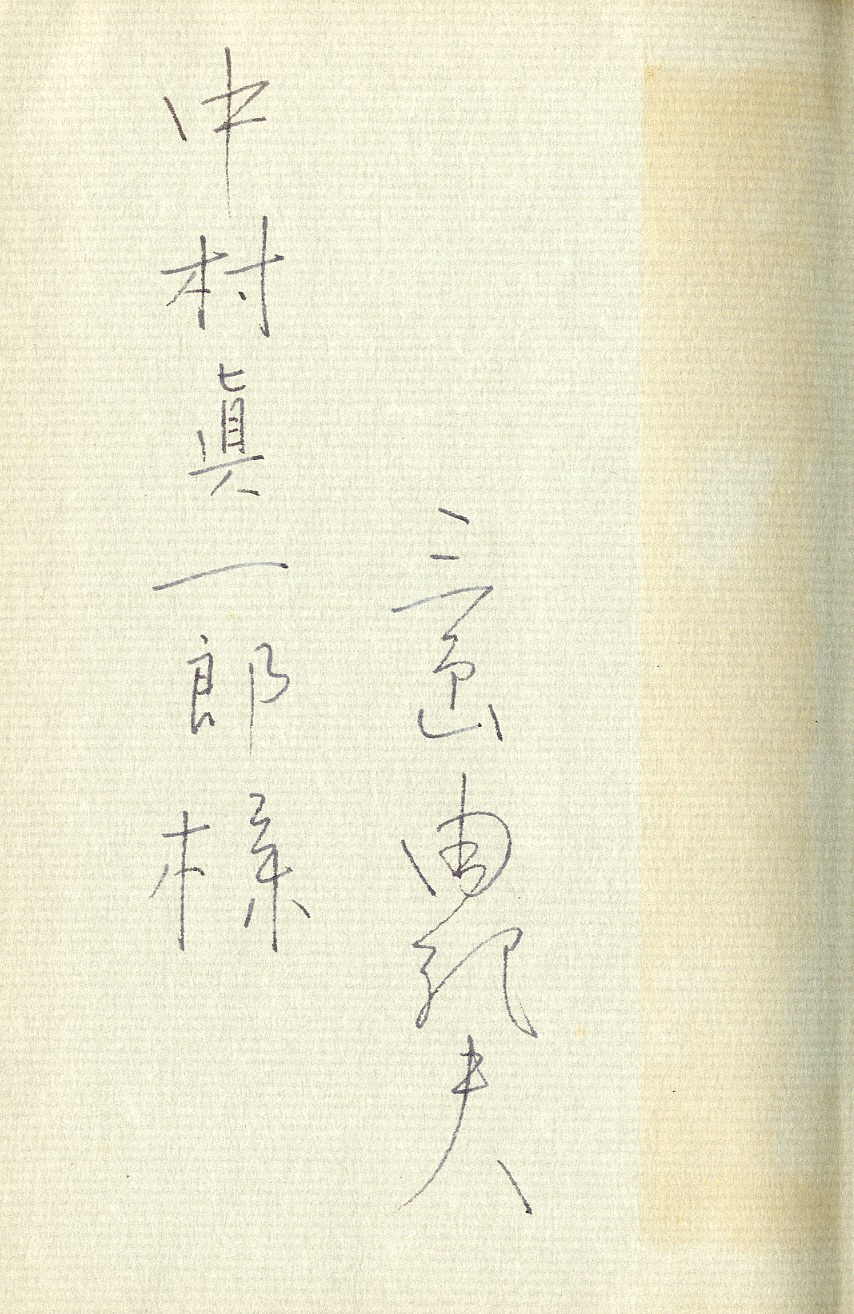 三島由紀夫
中村眞一郎様